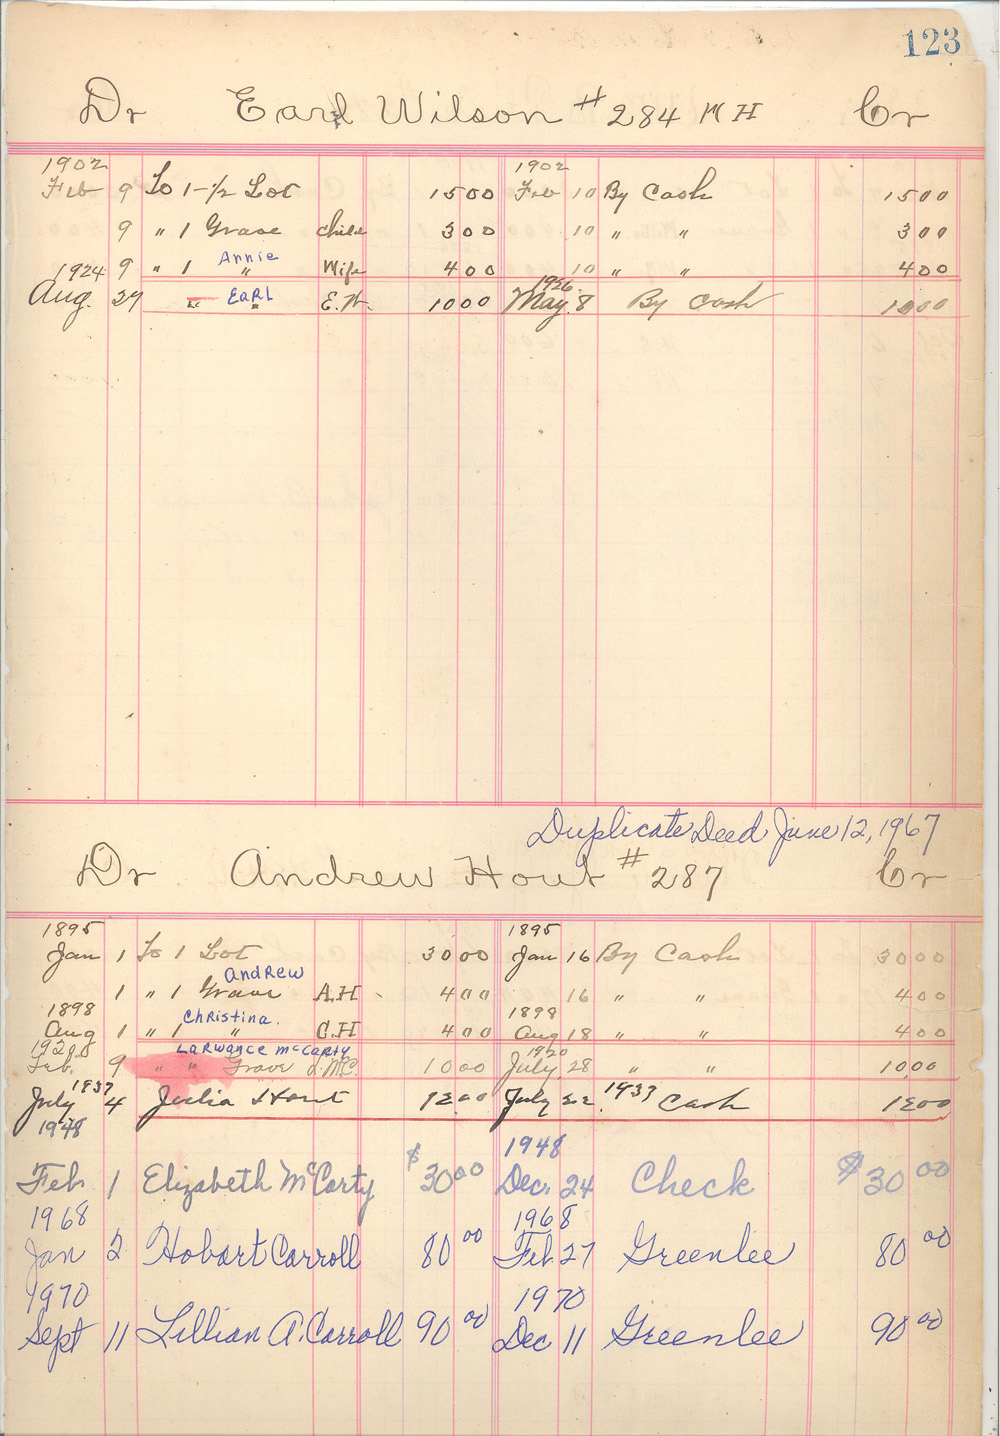 123
Dr Earl Wilson # 284 M H Cr
1902 1902
Feb 9 To 1-1/2 Lot 15 00 Feb 10 By Cash 15 00
9 " 1 Grave Child 3 00 10 " " 3 00
Annie
9 " 1 " Wife 4 00 10 " " 4 00
1924 1926
Aug. 27 " EARL " E.W. 10 00 May 8 By Cash 10 00
Duplicate Deed June 12, 1967
Dr Andrew Hout # 287 Cr
1895 1895
Jan 1 To 1 Lot 30 00 Jan 16 By Cash 30 00
Andrew
1 " 1 Grave A.H 4 00 16 " " 4 00
1898 Christina. 1898
Aug 1 " 1 " C.H 4 00 Aug 18 " " 4 00
1920 Larwance McCarty 1920
Feb. 9 " " Grave L.McC. 10 00 July 28 " " 10.00
1937
July 4 Julia Hout 12 00 July 22. 1937 Cash 12 00
1948 1948
Feb 1 Elizabeth McCarty $30 00 Dec. 24 Check $30 00
1968 1968
Jan 2 Hobart Carroll 80 00 Feb. 27 Greenlee 80 00
1970 1970
Sept 11 Lillian A. Carroll 90 00 Dec 11 Greenlee 90 00